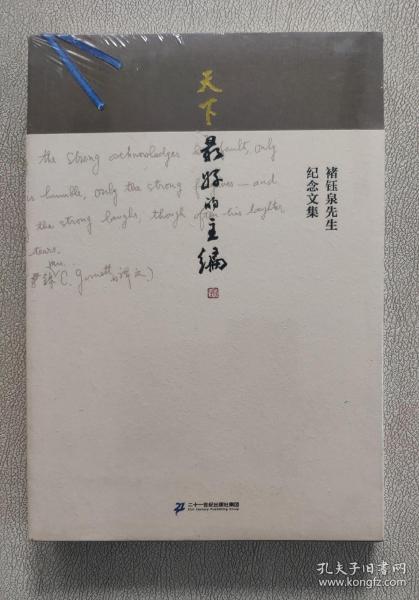 天下
最好的主编
褚钰泉先生
纪念文集
the strong acknowledges fault, only
is humble, only the strong forgives — and
the strong laughs, though often his laughter,
tears.
(C. Garnett
二十一世纪出版社集团
21st Century Publishing Group
孔夫子旧书网
www.kongfz.com